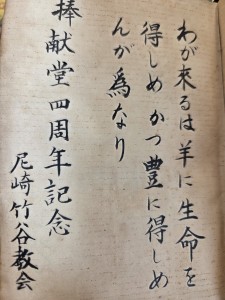 わが來るは羊に生命を
得しめ かつ豊に得しめ
んが爲なり
捧献堂四周年記念
尼崎竹谷教会